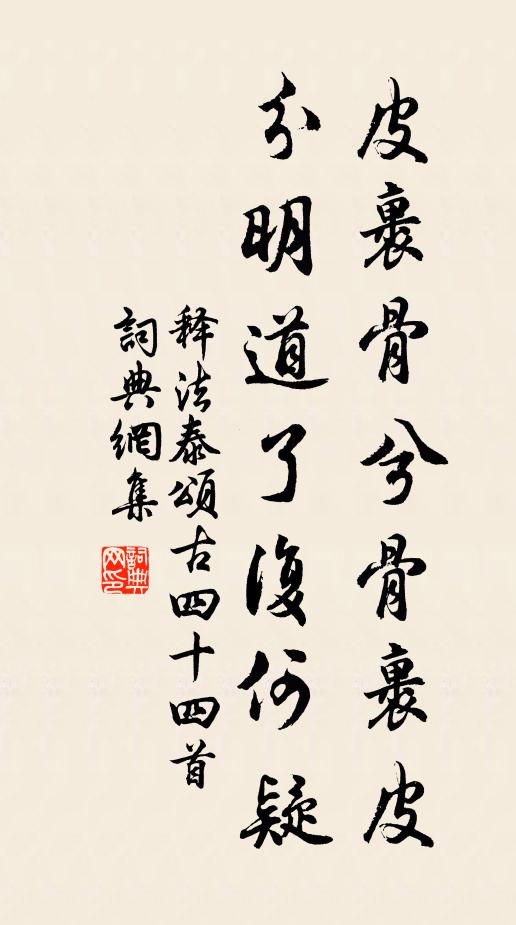 皮裹骨兮骨裹皮
分明道了復何疑
释法泰頌古四十四首
詞典網集
詞典网印